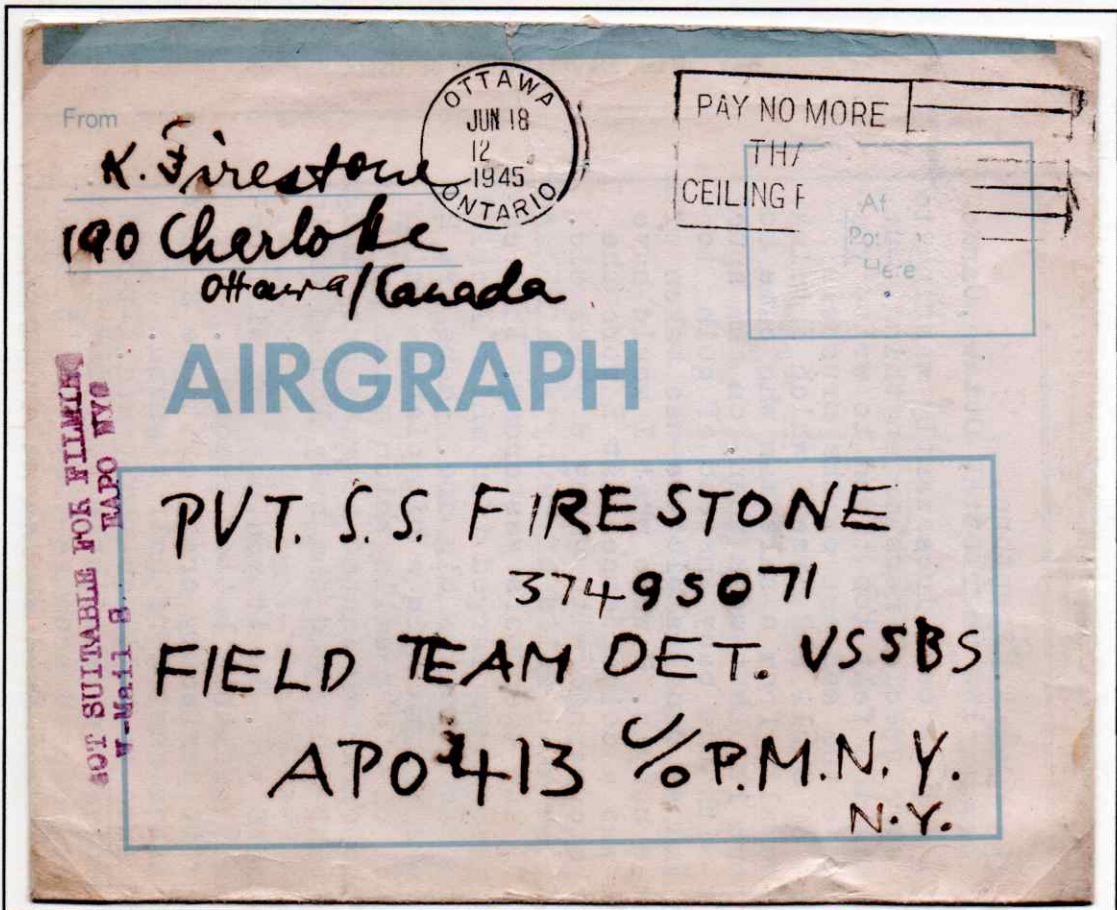 From
K. Firestone
190 Charlotte
Ottawa/Canada
OTTAWA
JUN 18
12
1945
ONTARIO
PAY NO MORE
THA
CEILING P
Af
Here
AIRGRAPH
NOT SUITABLE FOR FILMING
V-Mail
BAPO NYC
PVT. S.S. FIRESTONE
37495071
FIELD TEAM DET. USSBS
APO 413 C/O P.M.N.Y.
N.Y.